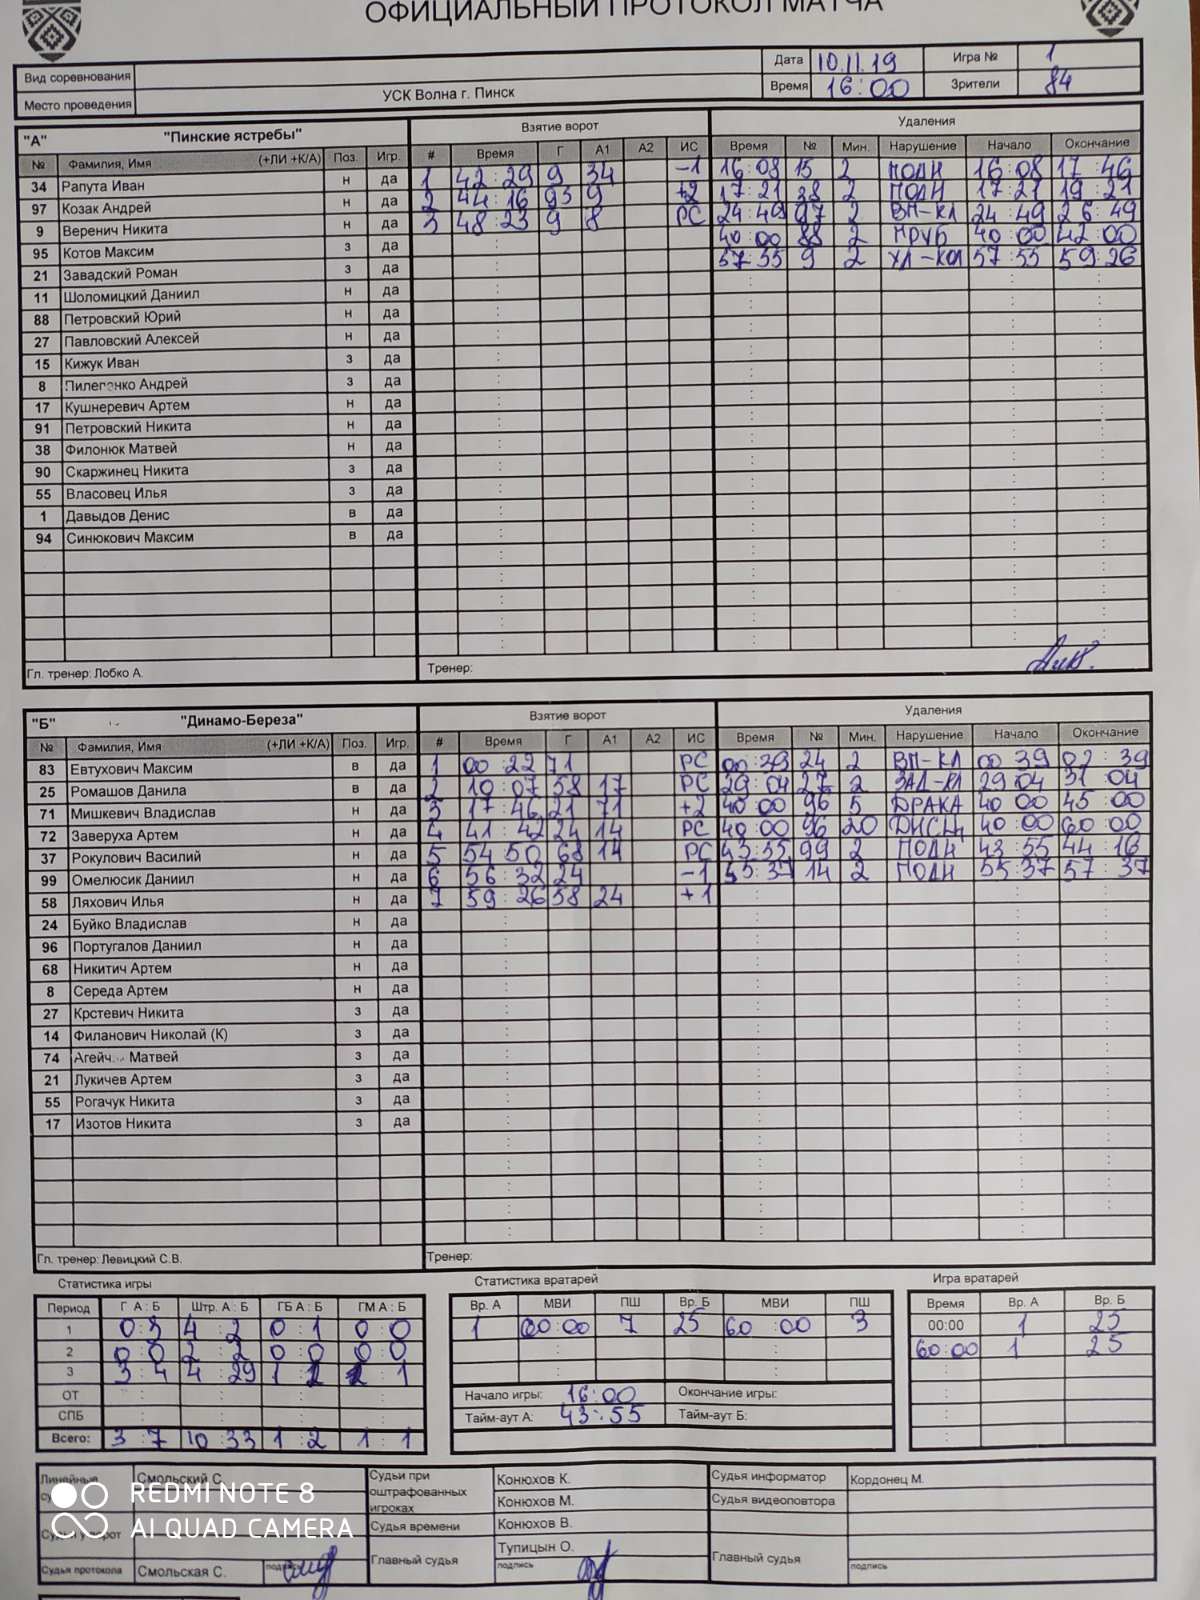 ОФИЦИАЛЬНЫЙ ПРОТОКОЛ МАТЧА
Вид соревнования Дата 10.11.19 Игра № 1
Место проведения УСК Волна г. Пинск Время 16:00 Зрители 84
"А" "Пинские ястребы" Взятие ворот Удаления
№ Фамилия, Имя (+ЛИ +К/А) Поз. Игр. # Время Г А1 А2 ИС Время № Мин. Нарушение Начало Окончание
34 Рапута Иван н да 1 42:29 9 34 -1 16:08 15 2 ПОДН 16:08 17:46
97 Козак Андрей н да 2 44:16 93 9 +2 17:21 38 2 ПОДН 17:21 19:21
9 Веренич Никита н да 3 48:23 9 8 РС 24:49 97 2 ВП-КЛ 24:49 26:49
95 Котов Максим з да 40:00 88 2 ГРУБ 40:00 42:00
21 Завадский Роман з да 57:55 9 2 57:55 59:26
11 Шоломицкий Даниил н да
88 Петровский Юрий н да
27 Павловский Алексей н да
15 Кижук Иван з да
8 Пилипенко Андрей з да
17 Кушнеревич Артем н да
91 Петровский Никита н да
38 Филонюк Матвей н да
90 Скаржинец Никита з да
55 Власовец Илья з да
1 Давыдов Денис в да
94 Синюкович Максим в да
Гл. тренер: Лобко А. Тренер:
"Б" "Динамо-Береза" Взятие ворот Удаления
№ Фамилия, Имя (+ЛИ +К/А) Поз. Игр. # Время Г А1 А2 ИС Время № Мин. Нарушение Начало Окончание
83 Евтухович Максим в да 1 00:22 71 РС 00:39 24 2 ВП-КЛ 00 39 02:39
25 Ромашов Данила в да 2 10:07 58 17 РС 29:04 27 2 ЗАД-КЛ 29 04 31 04
71 Мишкевич Владислав н да 3 17:46 21 71 +2 40 00 96 5 ДРАКА 40 00 45:00
72 Заверуха Артем н да 4 41:42 24 14 РС 40:00 96 20 ДИСЦ 40:00 60:00
37 Рокулович Василий н да 5 54 50 68 14 РС 43:55 99 2 ПОДН 43:55 44:16
99 Омелюсик Даниил н да 6 56:32 24 -1 55:37 14 2 ПОДН 55:37 57:37
58 Ляхович Илья н да 7 59:26 58 24 +1
24 Буйко Владислав н да
96 Португалов Даниил н да
68 Никитич Артем н да
8 Середа Артем н да
27 Крстевич Никита з да
14 Филанович Николай (К) з да
74 Матвей з да
21 Лукичев Артем з да
55 Рогачук Никита з да
17 Изотов Никита з да
Гл. тренер: Левицкий С.В. Тренер:
Статистика игры Статистика вратарей Игра вратарей
Период Г А : Б Штр. А : Б ГБ А : Б ГМ А : Б Вр. А МВИ ПШ Вр. Б МВИ ПШ Время Вр. А Вр. Б
1 0:3 4:2 0:1 0:0 1 60:00 7 25 60:00 3 00:00 1 25
2 0:0 2:2 0:0 0:0 60:00 1 25
3 3:4 4:29 1 1
ОТ Начало игры: 16:00 Окончание игры:
СПБ Тайм-аут А: 43:55 Тайм-аут Б:
Всего: 3:7 10:33 1:2 1:1
Линейные Смольский С. Судьи при оштрафованных игроках Конюхов К. Судья информатор Кордонец М.
Конюхов М. Судья видеоповтора
Судья времени Конюхов В.
Главный судья Тупицын О. Главный судья
Судья протокола Смольская С. подпись подпись
REDMI NOTE 8
AI QUAD CAMERA